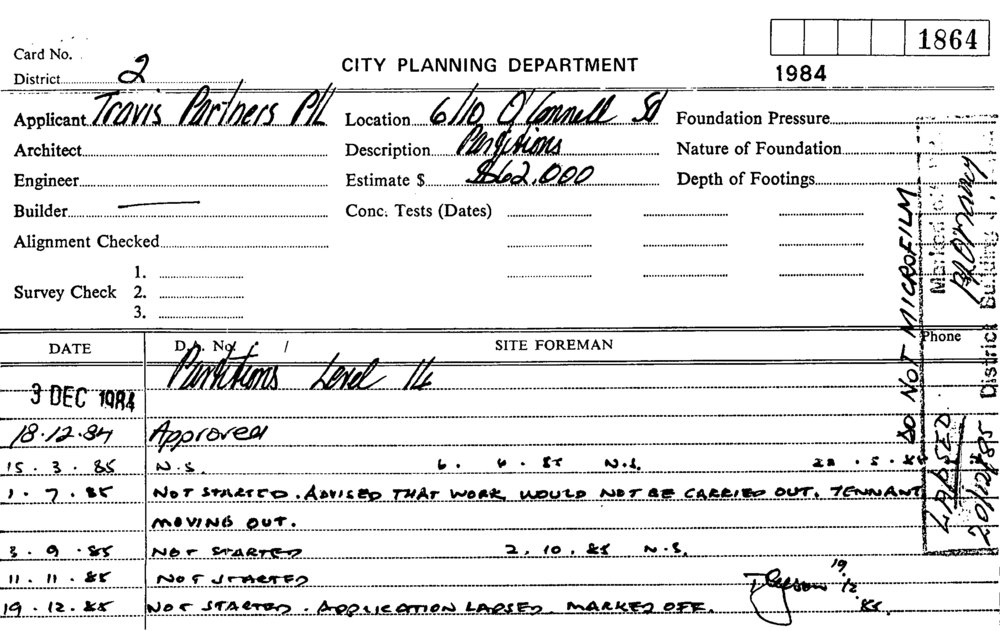 1864
Card No.
District 2
CITY PLANNING DEPARTMENT
1984
Applicant Travis Partners P/L
Location 6/10 O'Connell St
Foundation Pressure
Architect
Description Partitions
Nature of Foundation
Engineer
Estimate $ $62,000
Depth of Footings
Builder
Conc. Tests (Dates)
Alignment Checked
1.
Survey Check 2.
3.
DATE
D.A. No. /
SITE FOREMAN
Phone
Partitions Level 14
3 DEC 1984
18.12.84 Approved
15.3.85 N.S. 6.4.85 N.S. 22.5.85
1.7.85 NOT STARTED. ADVISED THAT WORK WOULD NOT BE CARRIED OUT. TENNANT
MOVING OUT.
3.9.85 NOT STARTED 2.10.85 N.S.
11.11.85 NOT STARTED
19.12.85 NOT STARTED. APPLICATION LAPSED. MARKED OFF. 19.12.85.
DO NOT MICROFILM
LAPSED
20/12/85
Marked off
District Building